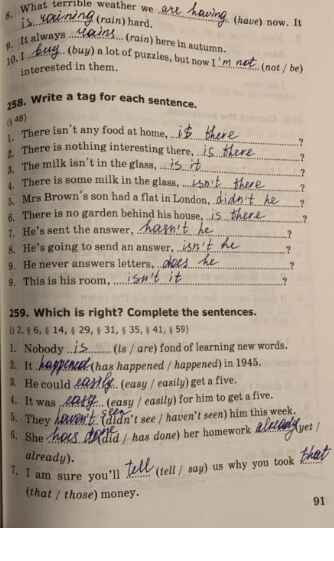 8. What terrible weather we are having (have) now. It
is raining (rain) hard.
9. It always rains (rain) here in autumn.
10. I buy (buy) a lot of puzzles, but now I'm not (not / be)
interested in them.
258. Write a tag for each sentence.
(§ 48)
1. There isn't any food at home, is there ?
2. There is nothing interesting there, is there ?
3. The milk isn't in the glass, is it ?
4. There is some milk in the glass, isn't there ?
5. Mrs Brown's son had a flat in London, didn't he ?
6. There is no garden behind his house, is there ?
7. He's sent the answer, hasn't he ?
8. He's going to send an answer, isn't he ?
9. He never answers letters, does he ?
9. This is his room, isn't it ?
259. Which is right? Complete the sentences.
(§ 2, § 6, § 14, § 29, § 31, § 35, § 41, § 59)
1. Nobody is (is / are) fond of learning new words.
2. It happened (has happened / happened) in 1945.
3. He could easily (easy / easily) get a five.
4. It was easy (easy / easily) for him to get a five.
5. They haven't seen (didn't see / haven't seen) him this week.
6. She has done (did / has done) her homework already (yet /
already).
7. I am sure you'll tell (tell / say) us why you took that
(that / those) money.
91